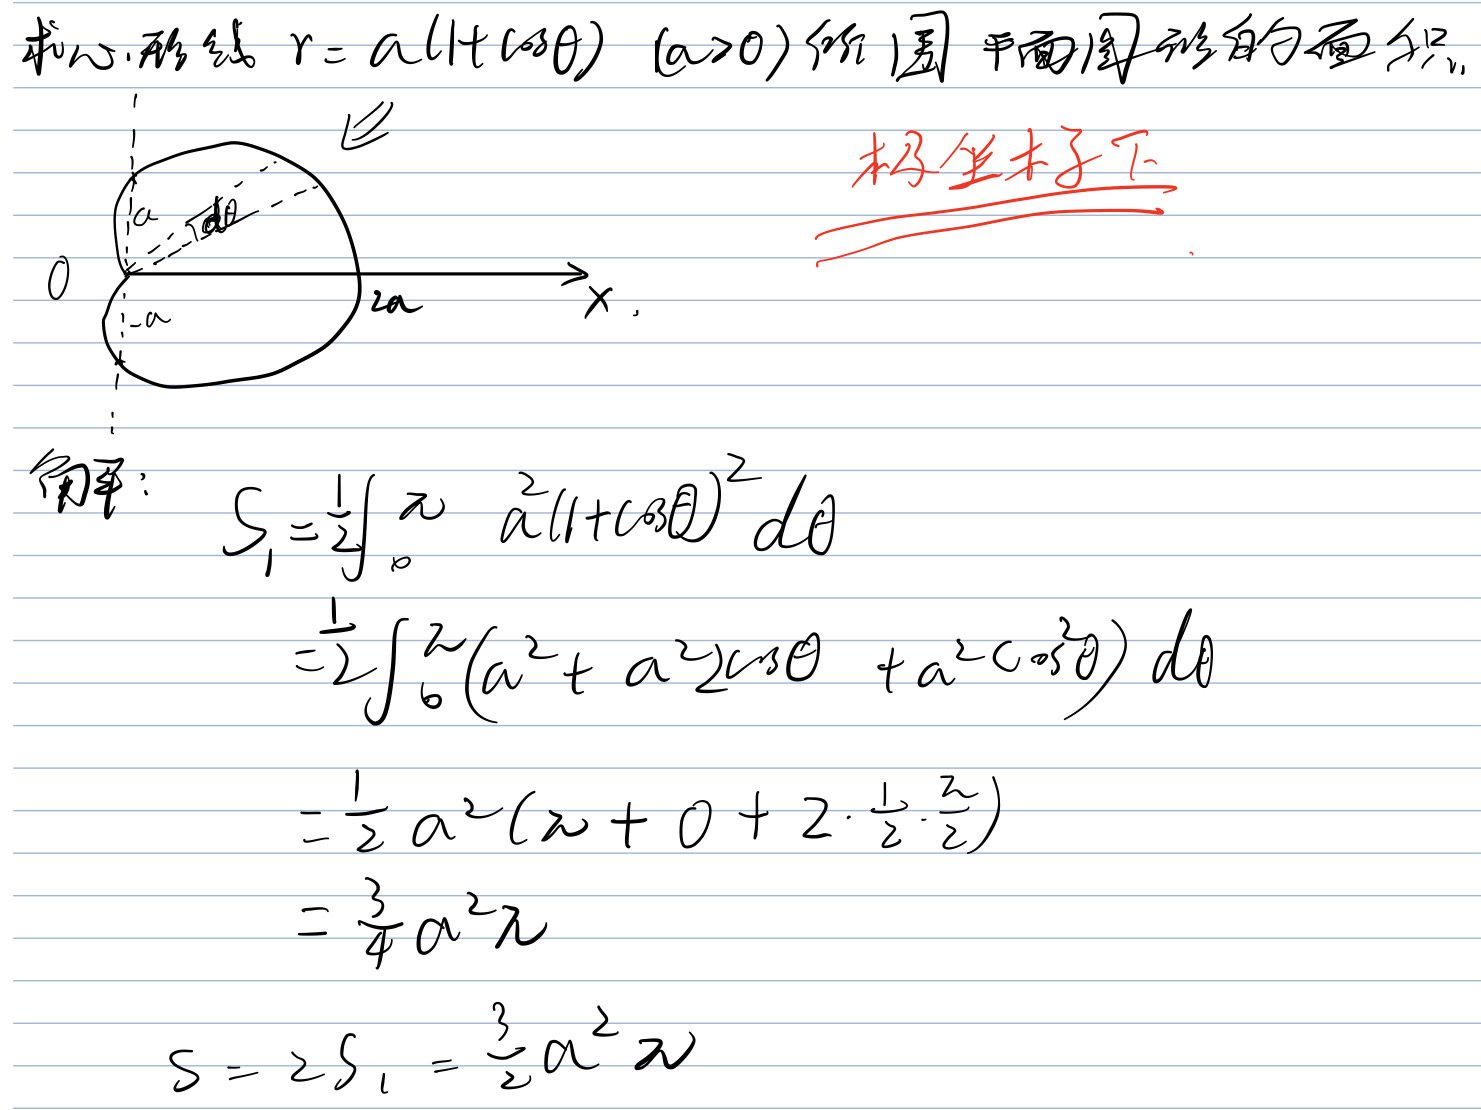 求心形线 r = a(1+cosθ) (a>0) 所围平面图形的面积.
极坐标下
a
dθ
0
2a
x.
-a
解:
S₁ = 1/2 ∫₀^π a²(1+cosθ)² dθ
= 1/2 ∫₀^π (a² + a²2cosθ + a²cos²θ) dθ
= 1/2 a² (π + 0 + 2·1/2·π/2)
= 3/4 a²π
S = 2S₁ = 3/2 a²π